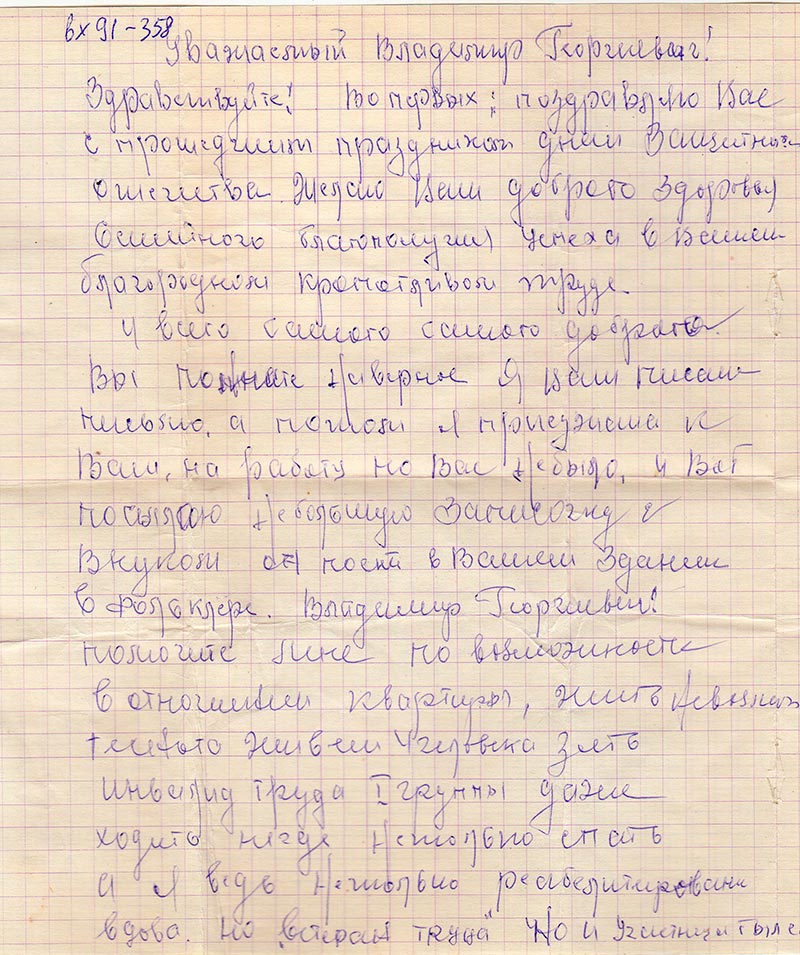 вх 91-358
Уважаемый Владимир Георгиевич!
Здравствуйте! Во первых: поздравляю Вас
с прошедшим праздником днем Защитника
отечества. Желаю Вам доброго здоровья
Семейного благополучия успеха в Вашем
благородном кропотливом труде.
и всего самого самого доброго.
Вы помните наверное я Вам писала
письмо, а потом я приезжала к
Вам, на работу но Вас небыло, и Вот
посылаю небольшую Записочку с
Внуком он поет в Вашем Здании
в фольклере. Владимир Георгиевич!
помогите мне по возможности
в отношении квартиры, жить невозмож
теснота живем 4 человека Зять
инвалид труда I группы даже
ходить негде нетолько спать
а я ведь нетолько реабелитирована
вдова. но "ветеран труда" Но и участница тыла